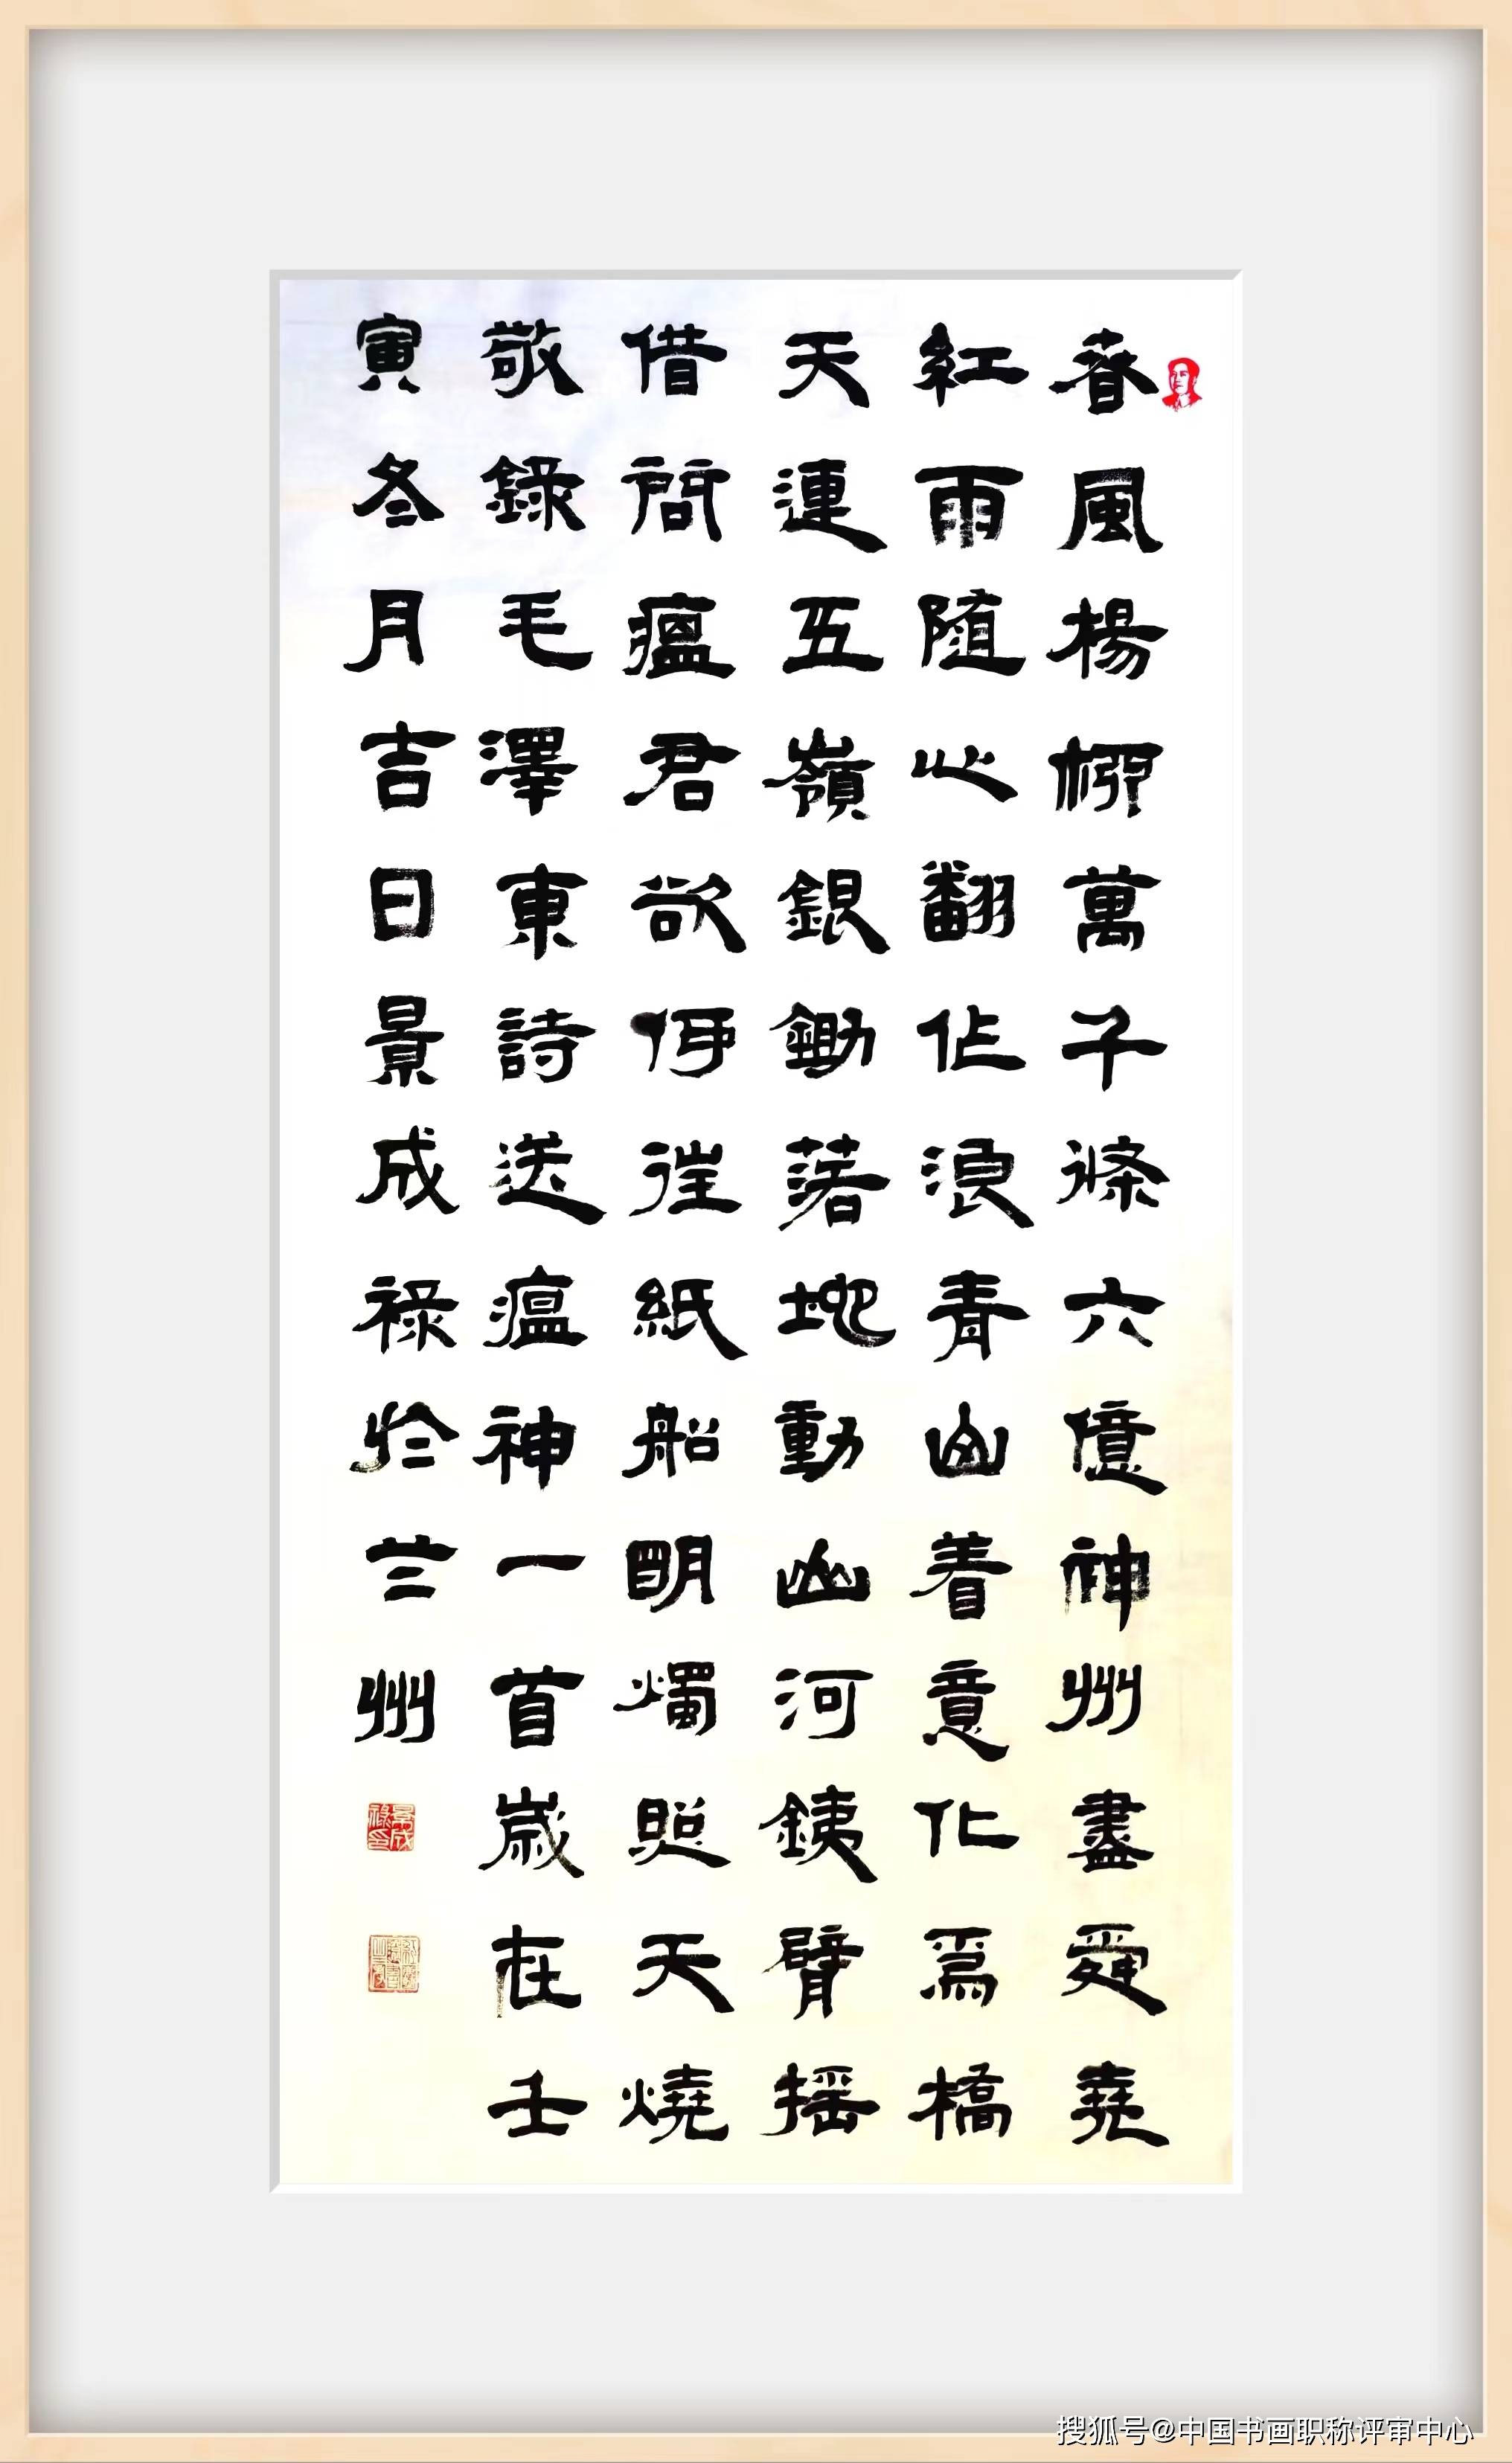 春風楊柳萬千條六億神州盡舜堯
紅雨随心翻作浪青山着意化爲橋
天連五嶺銀鋤落地動山河銕臂摇
借問瘟君欲何往紙船明燭照天燒
敬錄毛澤東詩送瘟神一首歲在壬
寅冬月吉日景成禄於兰州
景成禄印
搜狐号@中国书画职称评审中心